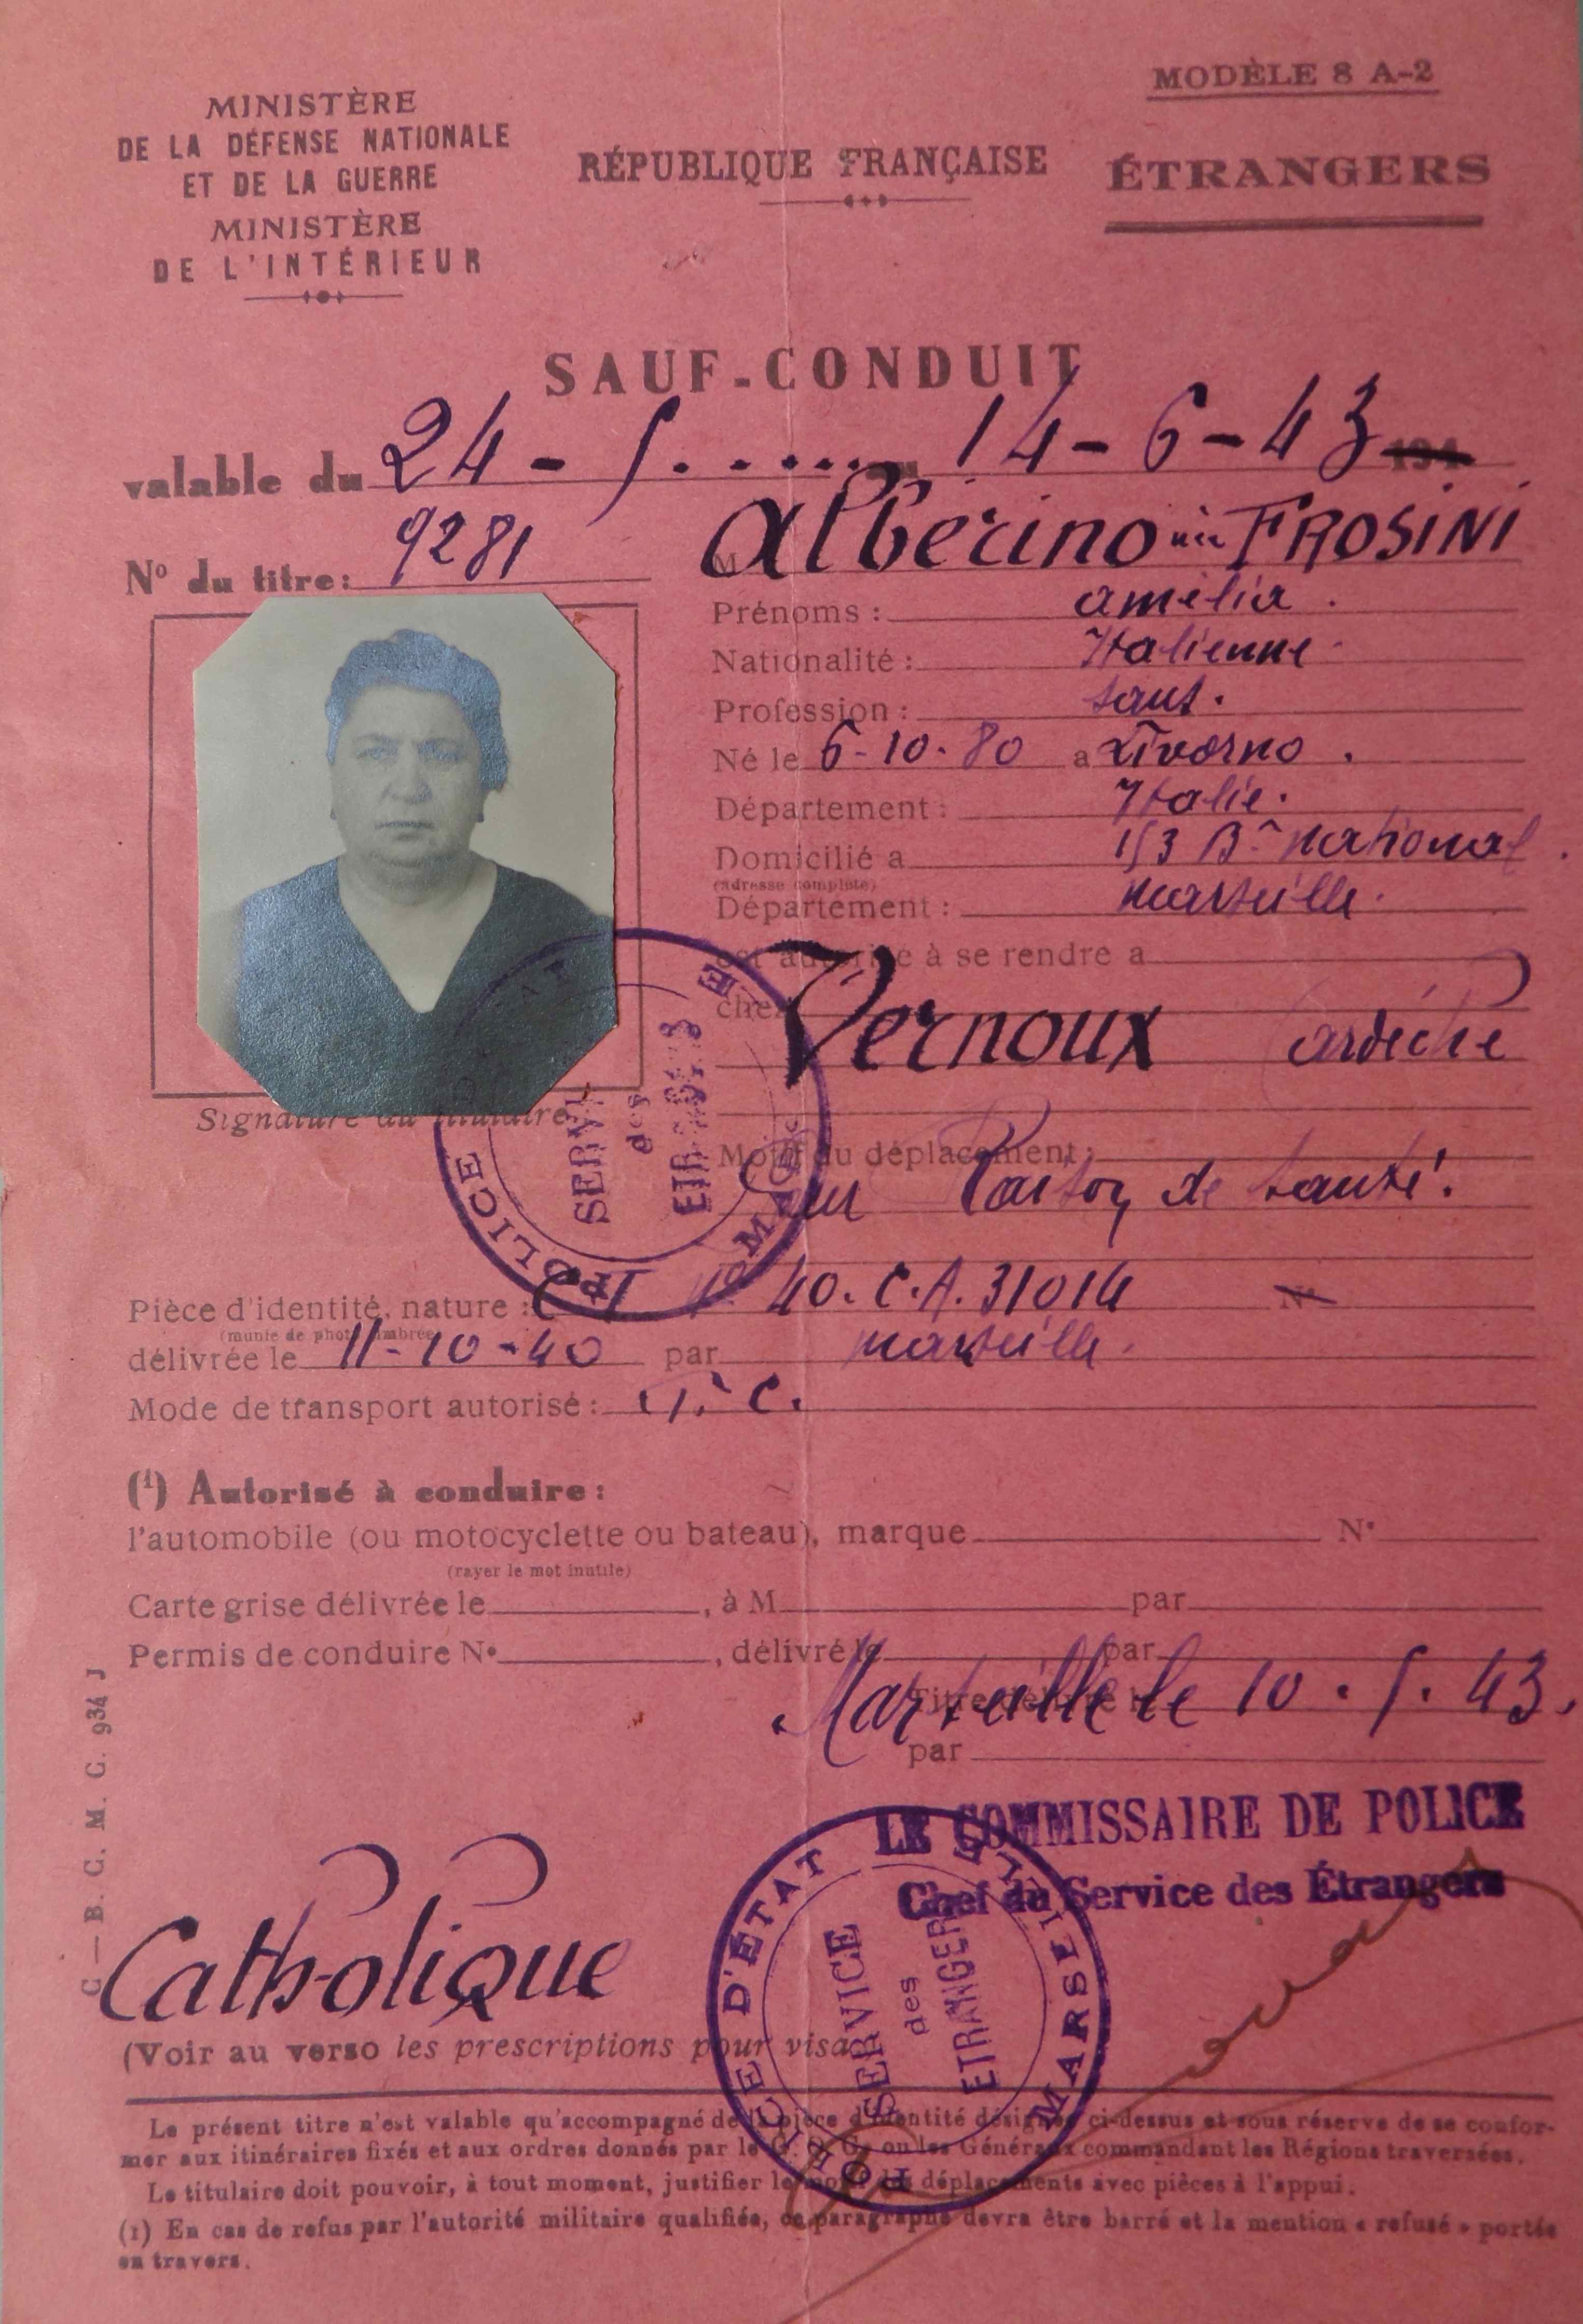 MODÈLE 8 A-2
MINISTÈRE
DE LA DÉFENSE NATIONALE
ET DE LA GUERRE
MINISTÈRE
DE L'INTÉRIEUR
RÉPUBLIQUE FRANÇAISE
ÉTRANGERS
SAUF-CONDUIT
valable du 24 - 5 . . . . . . . 14 - 6 - 43 194
Nº du titre: 9281
M Alberino née FROSINI
Prénoms : amélia .
Nationalité : Italienne
Profession : sans .
Né le 6-10-80 a Livorno .
Département : Italie .
Domicilié a 153 Bd National .
(adresse complète)
Département : Marseille .
est autorisé à se rendre a
chez Vernoux (ardèche)
Signature du titulaire
Motif du déplacement :
Raison de santé .
POLICE
SERVICE
des
Pièce d'identité, nature : C I Nº 40. C.A. 31014 Nº
(munie de photo timbrée)
délivrée le 11-10-40 par Marseille .
Mode de transport autorisé : C.
(¹) Autorisé à conduire :
l'automobile (ou motocyclette ou bateau), marque Nº
(rayer le mot inutile)
Carte grise délivrée le , à M par
Permis de conduire Nº , délivré le par
Titre délivré le
Marseille le 10 . 5 . 43 .
par
LE COMMISSAIRE DE POLICE
Chef du Service des Étrangers
POLICE D'ÉTAT MARSEILLE
SERVICE
des
ETRANGERS
Catholique
(Voir au verso les prescriptions pour visa
Le présent titre n'est valable qu'accompagné de la pièce d'identité désignée ci-dessus et sous réserve de se confor-
mer aux itinéraires fixés et aux ordres donnés par le G. Q. G. ou les Généraux commandant les Régions traversées.
Le titulaire doit pouvoir, à tout moment, justifier le motif de déplacements avec pièces à l'appui.
(1) En cas de refus par l'autorité militaire qualifiée, ce paragraphe devra être barré et la mention « refusé » portée
en travers.
C — B. C. M. C. 934 J